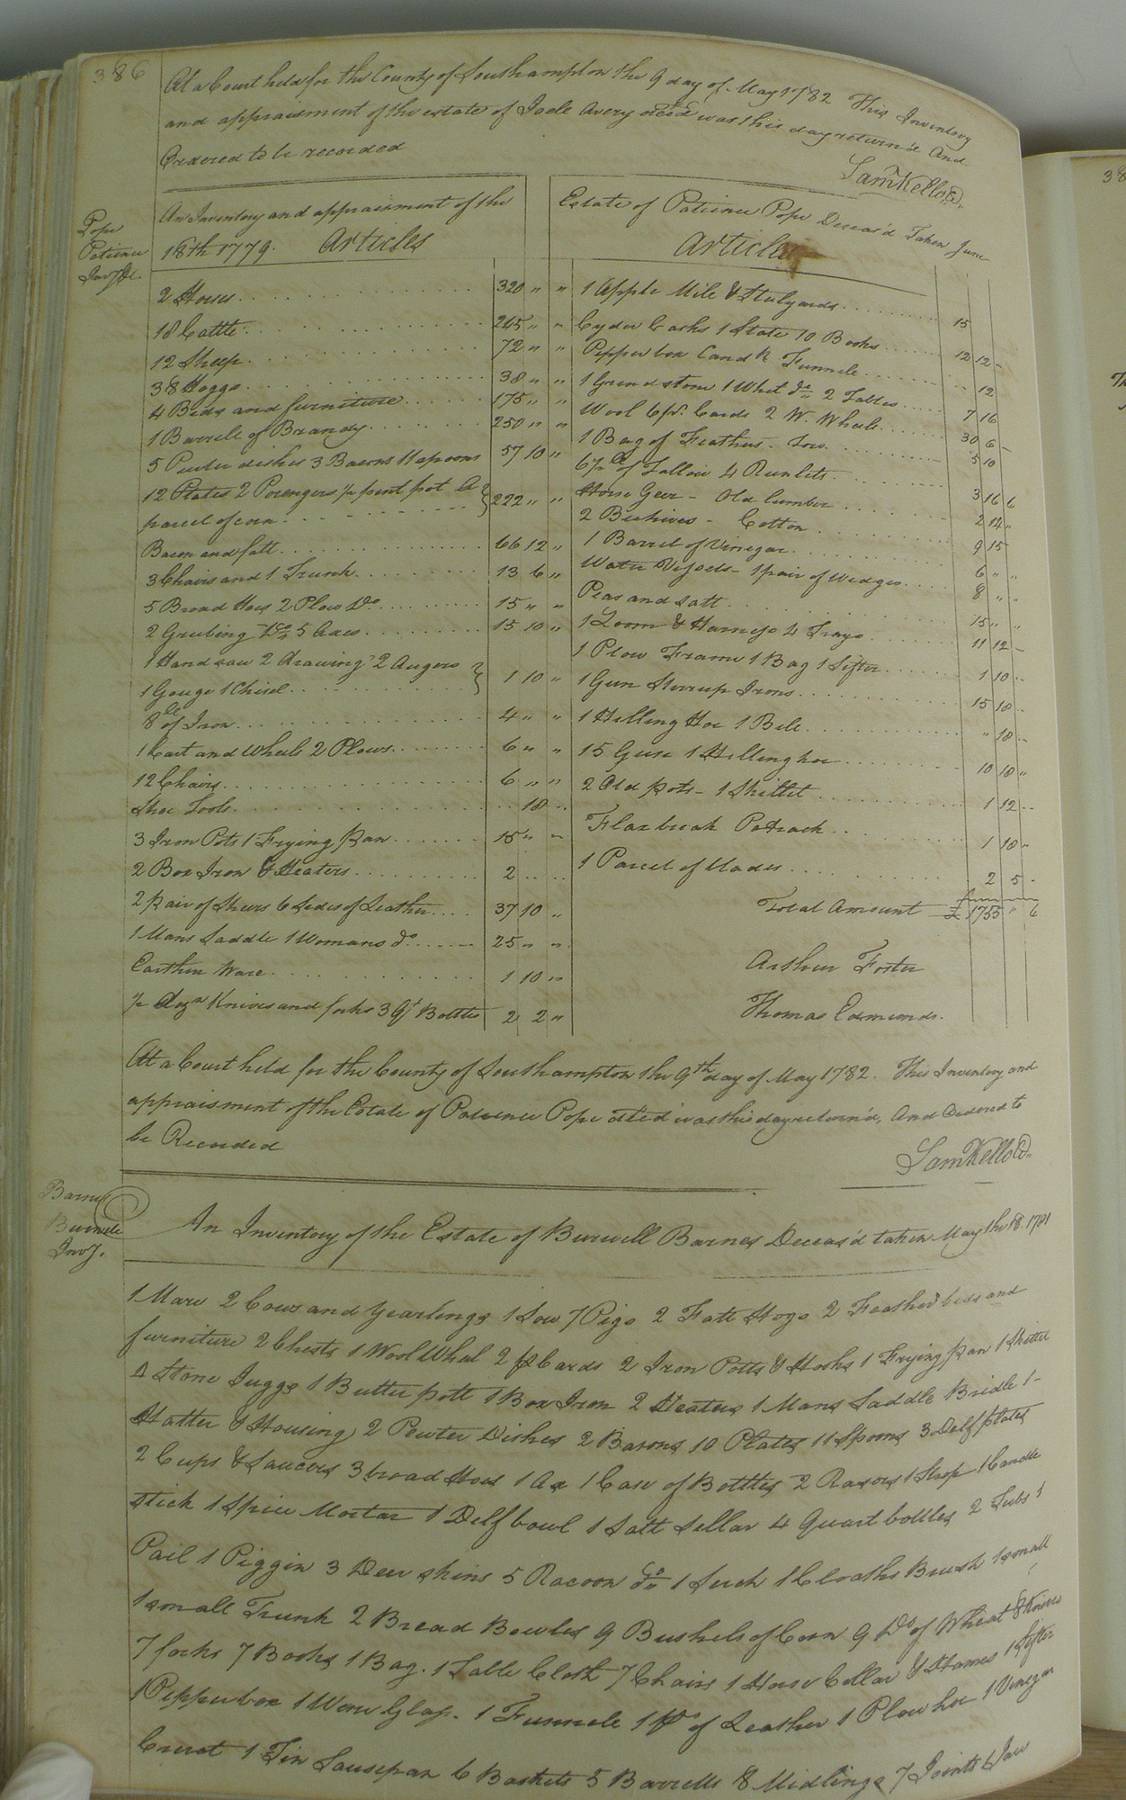 386
At a Court held for the County of Southampton the 9 day of May 1782 This Inventory
and appraisment of the estate of Joele Avery dec'd was this day return'd And
Ordered to be recorded
Sam Kello
Pope
Patience
Inv'y &c.
An Inventory and appraisment of the
18th 1779. Articles
2 Horses 320 " "
18 Cattle 265 " "
12 Sheep 72 " "
38 Hoggs 38 " "
4 Beds and furniture 175 " "
1 Barrele of Brandy 250 " "
5 Pewter dishes 3 Basons 11 spoons 57 10 "
12 Plates 2 Porengers ½ pint pot &
parcel of corn 222 " "
Bacon and fatt 66 12 "
3 Chairs and 1 Trunk 13 6 "
5 Broad Hoes 2 Plow Do 15 " "
2 Grubing Do 5 Axes 15 10 "
1 Hand saw 2 drawing 2 Augers
1 Gouge 1 Chisel 1 10 "
8 lb of Iron 4 " "
1 Cart and Wheels 2 Plows 6 " "
12 Chairs 6 " "
Shoe Tools 18
3 Iron Pots 1 Frying pan 15 " "
2 Box Iron & Heaters 2
2 pair of Shears 6 Sides of Leather 37 10 "
1 Mans Saddle 1 Womans do 25 " "
Earthen Ware 1 10 "
½ doz'n Knives and forks 3 Qt Bottles 2 2 "
Estate of Patience Pope Deceas'd Taken June
Articles
1 Apple Mile & Stulyards 15
Cyder Casks 1 Slate 10 Books 12 12 -
Pepper box Candk Funnele 12
1 Grindstone 1 Whet do 2 Tables 7 16
Wool 6 pr. Cards 2 W. Wheels 30 6 -
1 Bag of Feathers - Tow 5 10
6½ lb of Tallow 4 Runlets 3 16 6
Horse Geer - Old lumber 2 14 "
2 Beehives - Cotton 9 15
1 Barrel of Vinegar 6 " "
Water Vessels - 1 pair of Wedges 8 " "
Peas and salt 15 " "
1 Loom & Harness 4 Trays 11 12 -
1 Plow Frame 1 Bag 1 Sifter 1 10 -
1 Gun Stirrup Irons 15 10 -
1 Hilling Hoe 1 Bell " 18 -
15 Geese 1 Hilling hoe 10 10 "
2 Old pots - 1 Skillet 1 12 -
Flax break Potrack 1 10 "
1 Parcel of blades 2 5 -
Total Amount £ 1755 " 6
Arthur Foster
Thomas Edmunds.
At a Court held for the County of Southampton the 9th day of May 1782. This Inventory and
appraisment of the Estate of Patience Pope dec'd was this day return'd, And Ordered to
be Recorded
Sam Kello
Barnes
Burwele
Inv'y.
An Inventory of the Estate of Burwell Barnes Deceas'd taken May the 18. 1781
1 Mare 2 Cows and Yearlings 1 Sow 7 Pigs 2 Fatt Hogs 2 Feather beds and
furniture 2 Chests 1 Wool Wheel 2 pr Cards 2 Iron Potts & Hooks 1 Frying pan 1 Skillet
Stone Juggs 1 Butter pott 1 Box Iron 2 Heaters 1 Mans Saddle Bridle 1
Halter & Housing 2 Pewter Dishes 2 Basons 10 Plates 11 Spoons 3 Delf plates
2 Cups & Saucers 3 broad Hoes 1 Ax 1 Case of Bottles 2 Rasors 1 Strop 1 Candle
stick 1 Spice Mortar 1 Delf bowl 1 Salt Sellar 4 Quart bottles 2 Tubs 1
Pail 1 Piggin 3 Deer skins 5 Racoon do 1 Cloaths Brush 1 small
1 small Trunk 2 Bread Bowles 9 Bushels of Corn 9 Do of Wheat 8 Knives
7 forks 7 Books 1 Bag. 1 Table Cloth 7 Chairs 1 Horse Collar & Hames 1 Sifter
1 Pepper box 1 Wine Glass. 1 Funnele 1 ps of Leather 1 Plow hoe 1 Vinegar
Cruet 1 Tin Saucepan 6 Baskets 5 Barrells 8 Midlings 7 Joints 6 Jaw